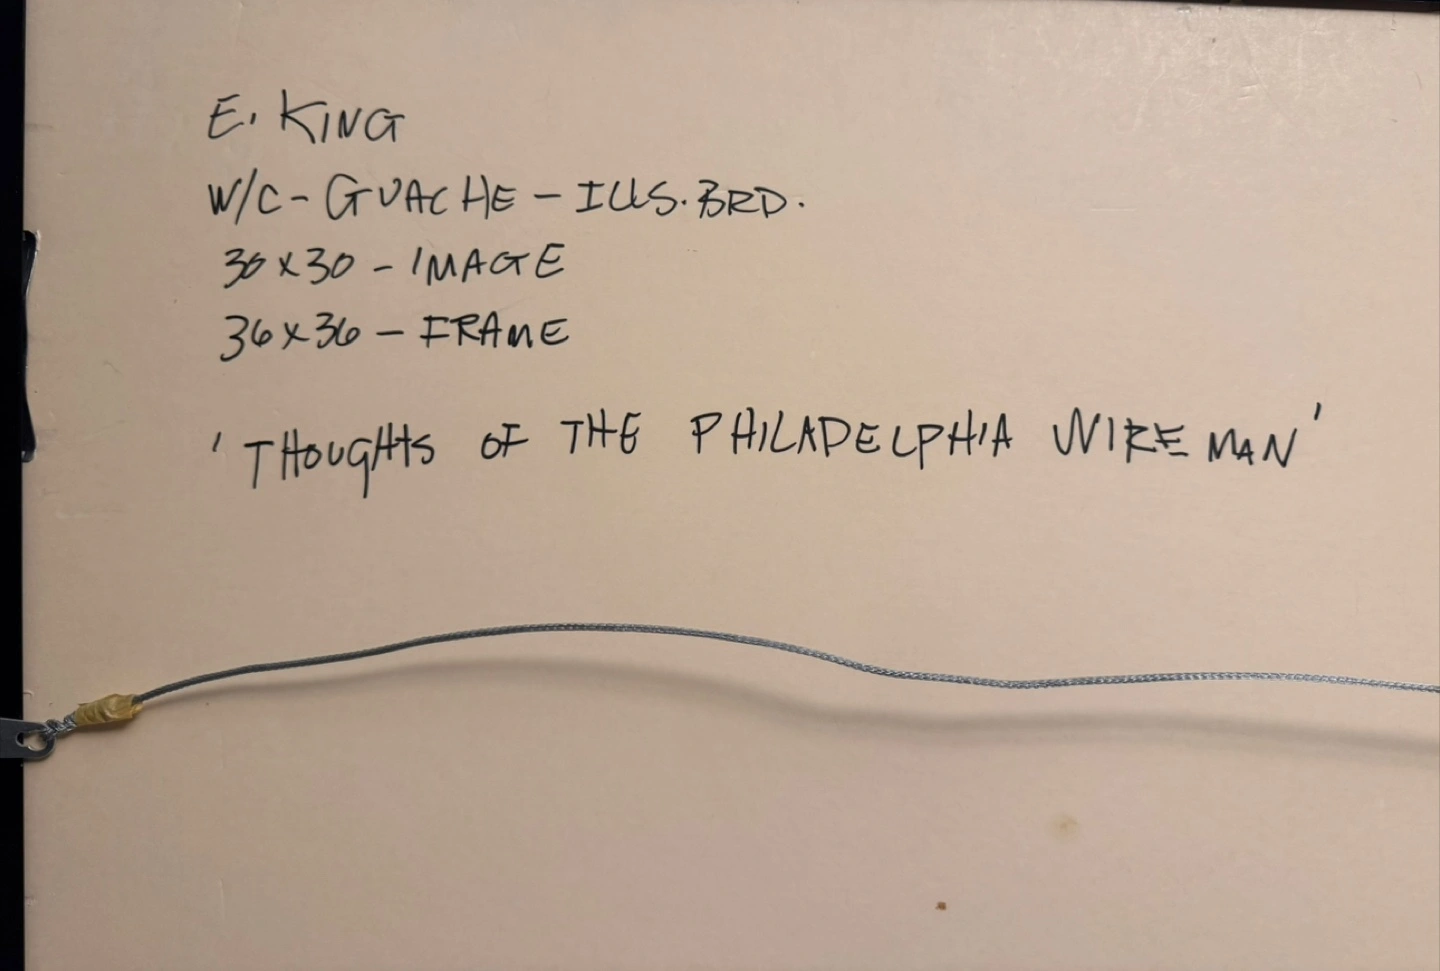 E. KING
W/C - GUACHE - ILLS. BRD.
30 x 30 - IMAGE
36 x 36 - FRAME
'THOUGHTS OF THE PHILADELPHIA WIREMAN'